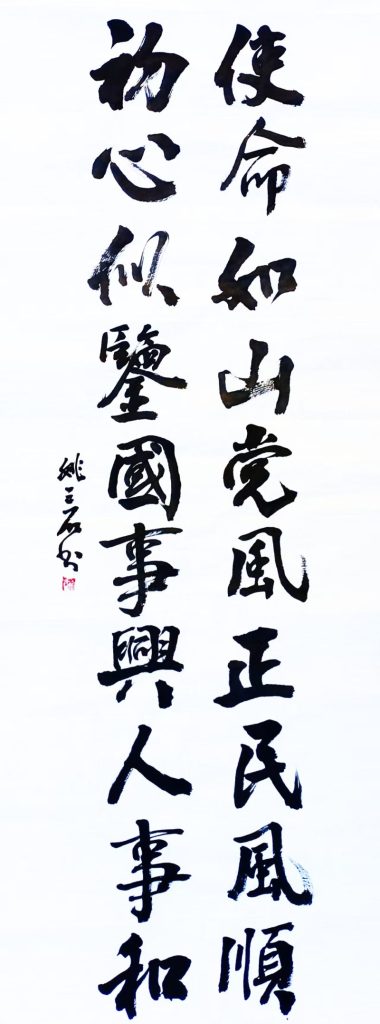 使命如山党風正民風順
初心似鑒國事興人事和
姚三石书